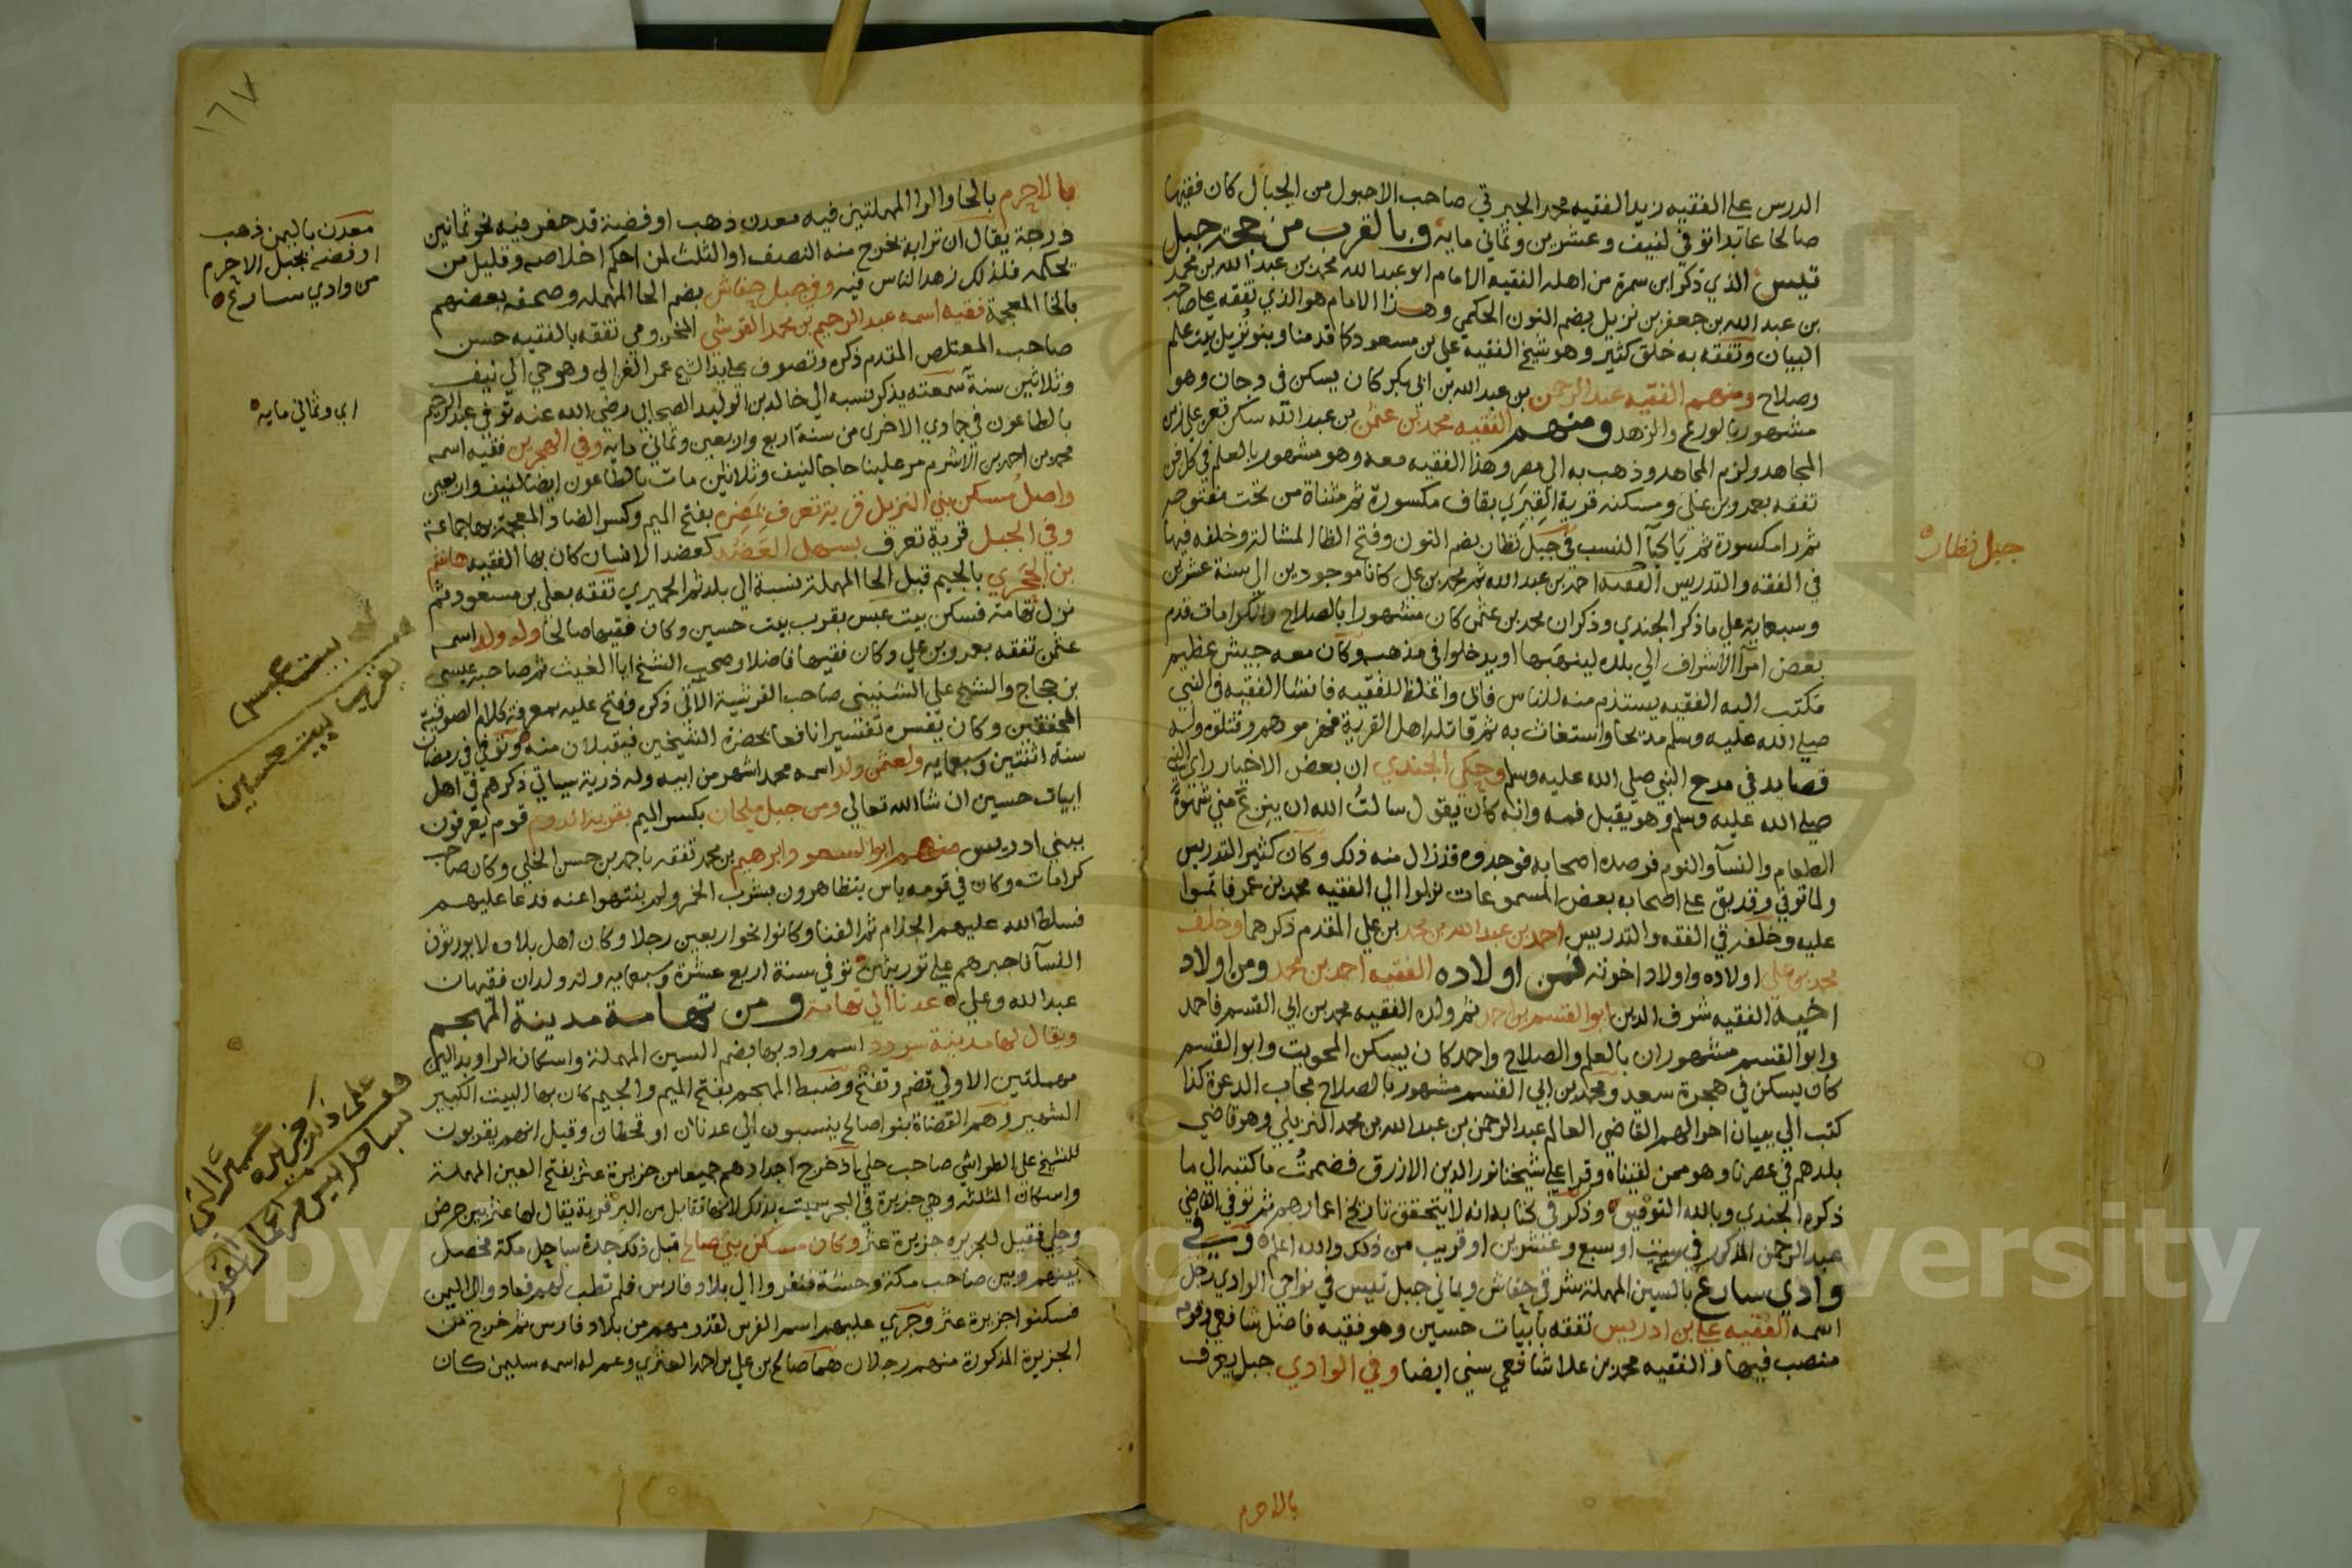 الدرس على الفقيه زيد الفقيه محمد الجبرتي صاحب الاحبول من الجبال كان فقيها
صالحا عابدا توفي لنيف وعشرين وثماني مايه وبالقرب من حجة جبل
تيس الذي ذكر ابن سمرة من اهله الفقيه الامام ابو عبد الله محمد بن عبد الله بن محمد
بن عبد الله بن جعفر بن نزيل بضم النون الحكمي وهذا الامام هو الذي تفقه على صاحب
البيان وتفقه به خلق كثير وهو شيخ الفقيه علي بن مسعود كما قدمنا وبنو نزيل بيت علم
وصلاح ومنهم الفقيه عبد الرحمن بن عبد الله بن ابي بكر كان يسكن في وجان وهو
مشهور بالورع والزهد ومنهم الفقيه محمد بن عثمن بن عبد الله سكن تعز على زمن
المجاهد ولزم المجاهد وذهب به الى مصر وهذا الفقيه معه وهو مشهور بالعلم في كل فن
تفقه بعمرو بن علي ومسكنه قرية القيري بقاف مكسورة ثم مثناة من تحت مفتوحه
ثم را مكسورة ثم يا كيآ النسب في جبل نظار بضم النون وفتح الظا المشالة وخلفه فيها
في الفقه والتدريس الفقيه احمد بن عبد الله ثم محمد بن علي كانا موجودين الي سنة عشرين
وسبعماية على ما ذكر الجندي وذكر ان محمد بن عثمن كان مشهورا بالصلاح والكرامات قدم
بعض امرآ الاشراف الي بلده لينهبها او يدخلوا في مذهبه وكان معه جيش عظيم
فكتب اليه الفقيه يستذم منه للناس فابى واغلظ للفقيه فانشا الفقيه في النبي
صلى الله عليه وسلم مديحا واستغاث به ثم قاتله اهل القرية فهزموهم وقتلوه وله
قصايد في مدح النبي صلى الله عليه وسلم وحكى الجندي ان بعض الاخيار راى النبي
صلى الله عليه وسلم وهو يقبل فمه وانه كان يقول سالت الله ان ينزع مني شهوة
الطعام والنسآ والنوم فرصده اصحابه فوجدوه قد زال منه ذلك وكان كثير التدريس
ولما توفي وقد بقي على اصحابه بعض المسموعات نزلوا الي الفقيه محمد بن عمر فاتموا
عليه وخلفه في الفقه والتدريس احمد بن عبد الله بن محمد بن علي المقدم ذكرهما وخلف
محمد بن علي اولاده واولاد اخوته فمن اولاده الفقيه احمد بن محمد ومن اولاد
اخيه الفقيه شرف الدين ابو القسم بن احمد ثم ولده الفقيه محمد بن ابي القسم فاحمد
وابو القسم مشهوران بالعلم والصلاح واحمد كان يسكن المحويت وابو القسم
كان يسكن في هجرة سعد ومحمد بن ابي القسم مشهور بالصلاح مجاب الدعوة كذا
كتب الي ببيان احوالهم القاضي العالم عبد الرحمن بن عبد الله بن محمد النزيلي وهو قاضي
بلدهم في عصرنا وهو ممن لقيناه وقرا على شيخنا نور الدين الازرق فضممت ما كتبه الي ما
ذكره الجندي وبالله التوفيق وذكر في كتابه انه لا يتحقق تاريخ اعمارهم ثم توفي القاضي
عبد الرحمن المذكور في سنة او سبع وعشرين او قريب من ذلك والله اعلم وفي
وادي سارع بالسين المهملة شرقي حفاش ويماني جبل تيس في نواحي الوادي رجل
اسمه الفقيه علي بن ادريس تفقه بابيات حسين وهو فقيه فاضل شافعي وقوم
منصب فيها والفقيه محمد بن علا شافعي سني ايضا وفي الوادي جبل يعرف
بالاحرم
جبل نظار
١٦٧
بالاحرم بالحا والرا المهملتين فيه معدن ذهب او فضة قد حفر فيه نحو ثمانين
درجة يقال ان ترابه يخرج منه النصف او الثلث لمن احكم اخلاصه وقليل من
يحكمه فلذلك زهد الناس فيه وفي جبل حفاش بضم الحا المهمله وصحفه بعضهم
بالخا المعجمة فقيه اسمه عبد الرحيم بن محمد القرشي المخزومي تفقه بالفقيه حسن
صاحب المعتلص المقدم ذكره وتصوف على يد الشيخ عمر الغزالي وهو حي الي نيف
وثلاثين سنة سمعته يذكر نسبه الي خالد بن الوليد الصحابي رضي الله عنه توفي عبد الرحيم
بالطاعون في جمادي الاخرى من سنة اربع واربعين وثماني مايه وفي الهجرين فقيه اسمه
محمد بن احمد بن الاشرم مر علينا حاجا لنيف وثلاثين مات بالطاعون ايضا لنيف واربعين
واصل مسكن بني النزيل قرية تعرف بمضره بفتح الميم وكسر الضاد المعجمة بها جماعة
وفي الجبل قرية تعرف بسهل العضد كعضد الانسان كان بها الفقيه هاشم
بن الحجري بالجيم قبل الحا المهملة نسبة الي بلد ثم الحميري تفقه بعلي بن مسعود ثم
نزل تهامة فسكن بيت عبس بقرب بيت حسين وكان فقيها صالحا وله ولد اسمه
عثمن تفقه بعمرو بن علي وكان فقيها فاضلا وصحب الشيخ ابا الغيث ثم صاحبه عيسى
بن حجاج والشيخ علي الشنيني صاحب القرشية الاتي ذكره وفتح عليه بمعرفة كلام الصوفية
المحققين وكان يفسره تفسيرا نافعا بحضرة الشيخين فيقبلان منه وتوفي في رمضان
سنة اثنتين وسبعمايه ولعثمن ولد اسمه محمد اشهر من ابيه وله ذرية سياتي ذكرهم في اهل
ابيات حسين ان شا الله تعالي ومن جبل ملحان بكسر الميم بقرية الدوم قوم يعرفون
ببني ادريس منهم ابو السعود ابرهيم بن محمد تفقه باحمد بن حسن الخلي وكان صاحب
كرامات وكان في قومه ناس يتظاهرون بشرب الخمر ولم ينتهوا عنه فدعا عليهم
فسلط الله عليهم الجذام ثم الفنا وكانوا نحو اربعين رجلا وكان اهل بلاده لا يورثون
النسآ فاجبرهم على توريثهن توفي سنة اربع عشرة وسبعمايه وله ولدان فقيهان
عبد الله وعلي عدنا الي تهامة ومن تهامة مدينة المهجم
ويقال لها مدينة سردد اسم واد بها بضم السين المهملة واسكان الرا وبدالين
مهملتين الاولي تضم وتفتح وضبط المهجم بفتح الميم والجيم كان بها البيت الكبير
الشهير وهم القضاة بنو صالح ينسبون الي عدنان او قحطان وقيل انهم يقربون
للشيخ علي الطواشي صاحب حلي اذ خرج اجدادهم جميعا من جزيرة عثر بفتح العين المهملة
واسكان المثلثه وهي جزيرة في البحر سميت بذلك لانها تقابل من البر قرية يقال لها عثر بين حرض
وحلي فقيل للجزيره جزيرة عثر وكان مسكن بني صالح قبل ذلك جدة ساحل مكة فحصل
بينهم وبين صاحب مكة وحشة فنفروا الي بلاد فارس فلم تطب لهم فعادوا الى اليمن
فسكنوا جزيرة عثر وجري عليهم اسم الفرس لقدومهم من بلاد فارس ثم خرج من
الجزيرة المذكورة منهم رجلان هما صالح بن علي بن احمد العثري وعم له اسمه سليمن كان
معدن باليمن ذهب
او فضه بجبل الاحرم
من وادي سارع
اي وثماني مايه
بيت عبس
بقرب بيت حسين
على ذكر جزيره
عثر التي